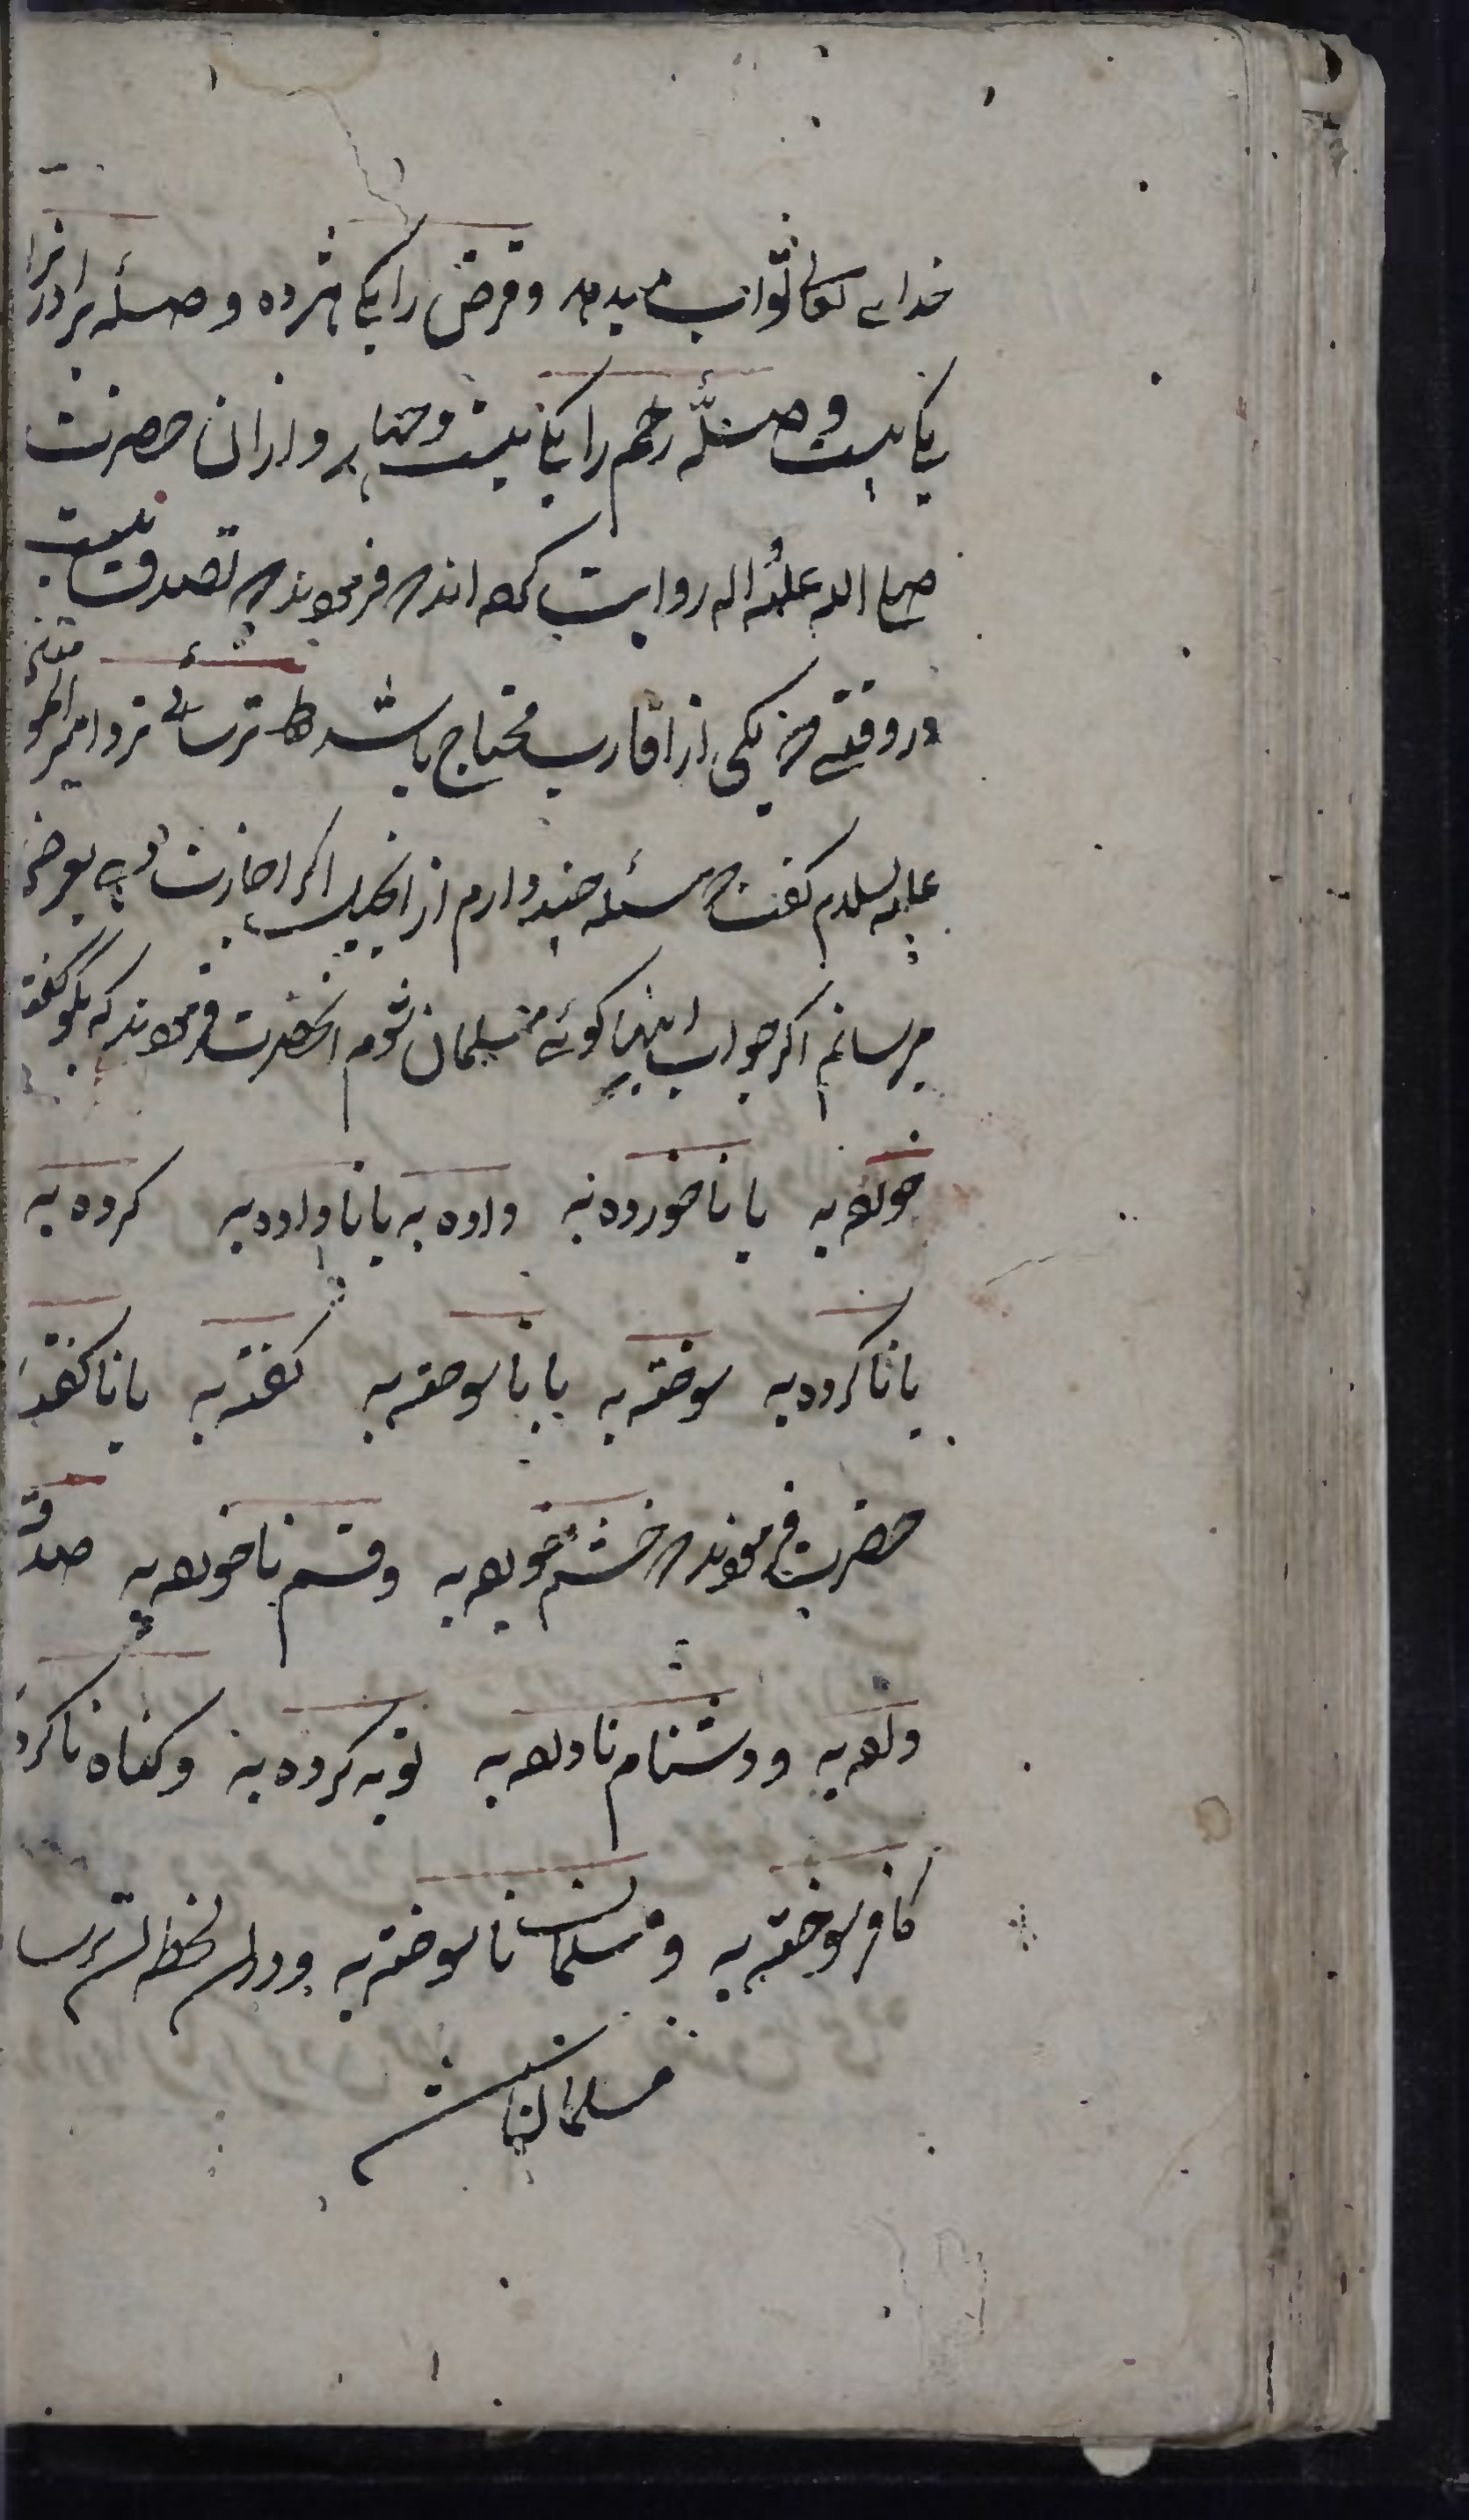 خدای تعالی ثواب میدهد و قرض را یکی هژده و صلهٔ برادر را
یکی بیست و صلهٔ رحم را یکی بیست و چهار و از ان حضرت
صلی الله علیه و اله روایت کرده اند که فرمودند که تصدق نیست
در وقتی که یکی از اقارب محتاج باشد ترسائی نزد امیر المؤمنین
علیه السلام گفت که مسئله چند دارم از انجیل اگر اجازت دهی بعرض
میرسانم اگر جواب اینها گوئی مسلمان شوم انحضرت فرمودند که بگو گفت
خورده به یا ناخورده به داده به یا ناداده به کرده به
یا ناکرده به سوخته به یا ناسوخته به گفته به یا ناگفته
حضرت فرمودند که خشم خورده به و قسم ناخورده به صدقه
داده به و دشنام ناداده به توبه کرده به و گناه ناکرده
کافر سوخته به و مسلمان ناسوخته به و در لحظه ترسا
مسلمان شد